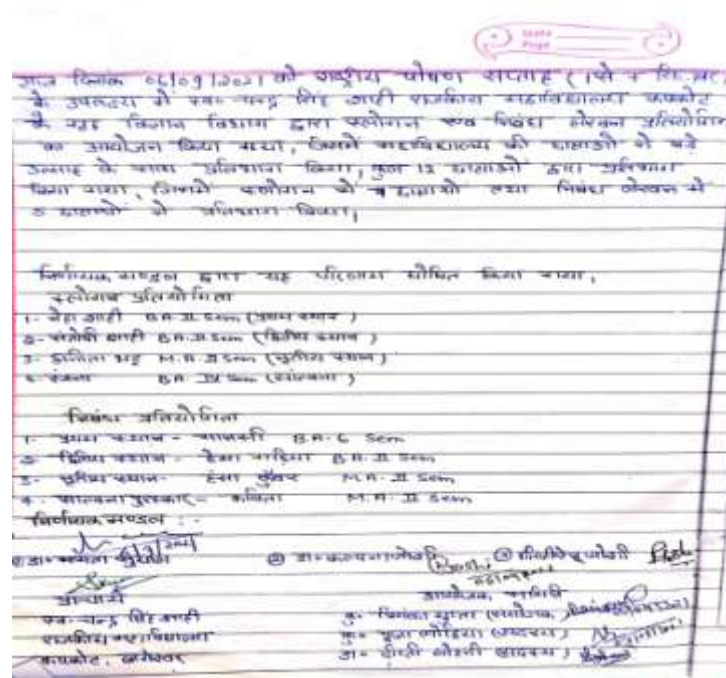 Date
Page
आज दिनांक 06/09/2021 को राष्ट्रीय पोषण सप्ताह (1 से 7
के उपलक्ष्य में स्व० चन्द्र सिंह शाही राजकीय महाविद्यालय कपकोट
के गृह विज्ञान विभाग द्वारा स्लोगान एवं निबंध लेखन प्रतियोगिता
का आयोजन किया गया, जिसमें महाविद्यालय की छात्राओं ने बड़े
उत्साह के साथ प्रतिभाग किया, कुल 12 छात्राओं द्वारा प्रतिभाग
किया गया, जिसमें स्लोगान में छात्राओं तथा निबंध लेखन में
5 छात्राओं ने प्रतिभाग किया,
निर्णायक मण्डल द्वारा यह परिणाम घोषित किया गया,
स्लोगान प्रतियोगिता
1- नेहा शाही B.A. II Sem (प्रथम स्थान)
2- संतोषी शाही B.A. II Sem (द्वितीय स्थान)
3- भट्ट M.A. II Sem (तृतीय स्थान)
4- रंजना B.A. IV Sem (सांत्वना)
निबंध प्रतियोगिता
1- प्रथम स्थान - मानसी B.A. 6 Sem
2- द्वितीय स्थान - हेमा B.A. II Sem
3- तृतीय स्थान- हंसा कुँवर M.A. II Sem
4- सान्त्वना पुरस्कार - कविता M.A. II Sem
निर्णायक मण्डल :-
① डा० ② डा० कल्पना जोशी ③ जोशी
प्राचार्य आयोजक समिति
स्व० चन्द्र सिंह शाही कु० गुप्ता (संयोजक)
राजकीय महाविद्यालय कु० पूजा लोहिया (सदस्य)
कपकोट, बागेश्वर डा० (सदस्य)